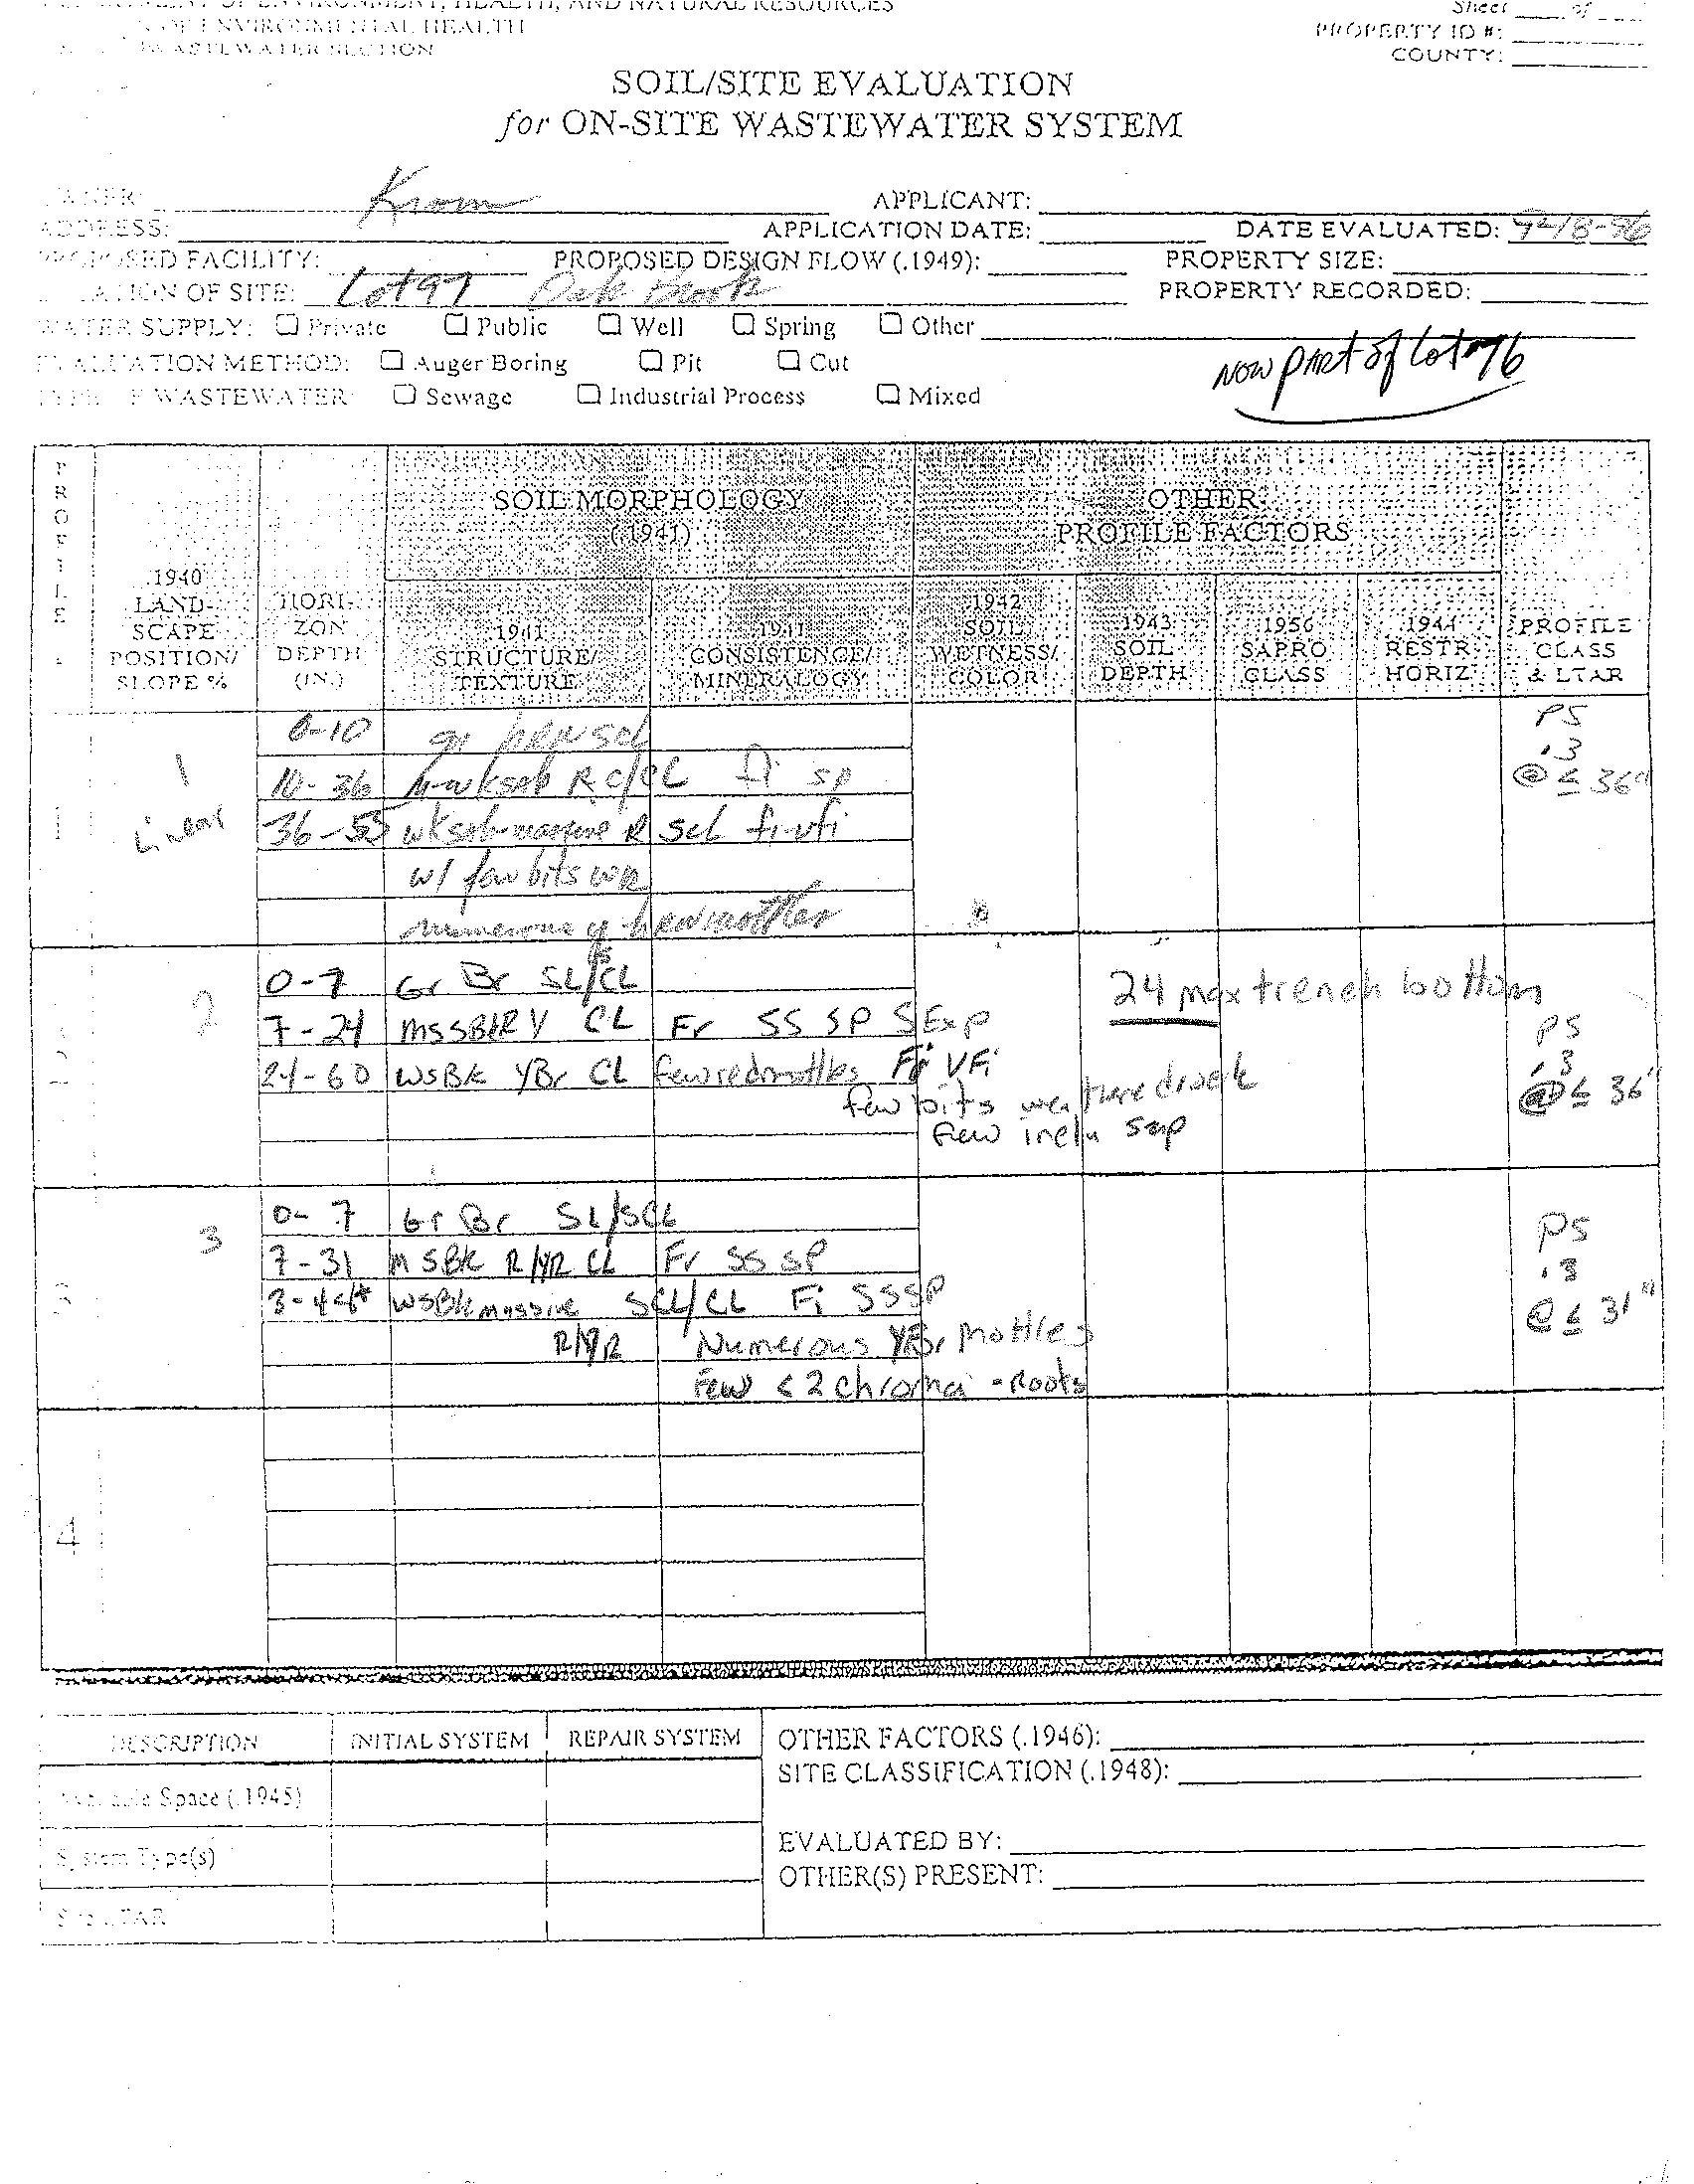 OF ENVIRONMENT, HEALTH, AND NATURAL RESOURCES
OF ENVIRONMENTAL HEALTH
WASTEWATER SECTION
Sheet ___ of ___
PROPERTY ID #:
COUNTY:
SOIL/SITE EVALUATION
for ON-SITE WASTEWATER SYSTEM
OWNER: Krom APPLICANT:
ADDRESS: APPLICATION DATE: DATE EVALUATED: 9-18-96
PROPOSED FACILITY: PROPOSED DESIGN FLOW (.1949): PROPERTY SIZE:
LOCATION OF SITE: Lot 97 Oak Brook PROPERTY RECORDED:
WATER SUPPLY: Private Public Well Spring Other
EVALUATION METHOD: Auger Boring Pit Cut
TYPE OF WASTEWATER: Sewage Industrial Process Mixed
Now part of Lot 76
PROFILE
.1940 LAND-SCAPE POSITION/ SLOPE %
HORI-ZON DEPTH (IN.)
SOIL MORPHOLOGY
(.1941)
OTHER
PROFILE FACTORS
.1941 STRUCTURE/ TEXTURE
.1941 CONSISTENCE/ MINERALOGY
.1942 SOIL WETNESS/ COLOR
.1943 SOIL DEPTH
.1956 SAPRO CLASS
.1944 RESTR HORIZ
PROFILE CLASS & LTAR
1
1 Linear
0-10 gr brn scl
10-36 m-wk sbk R C/CL fi sp
36-53 wk sbk-massive R scl fi-vfi
w/ few bits WR
numerous y-brn mottles
PS
.3
@ ≤ 36"
2
0-7 Gr Br SL/CL
7-24 CL Fr SS SP SExp
24-60 WSBK YBr CL few red mottles Fi VFi
few bits weathered rock
few inclu sap
24 max trench bottom
PS
.3
@ ≤ 36"
3
0-7 Gr Br SL/SCL
7-31 M SBK R/YR CL Fr SS SP
3-48* WSBK massive SCL/CL Fi SSSP
R/YR Numerous YBr Mottles
Few < 2 chroma - Roots
PS
.3
@ ≤ 31"
4
DESCRIPTION INITIAL SYSTEM REPAIR SYSTEM
Available Space (.1945)
System Type(s)
Site LTAR
OTHER FACTORS (.1946):
SITE CLASSIFICATION (.1948):
EVALUATED BY:
OTHER(S) PRESENT: